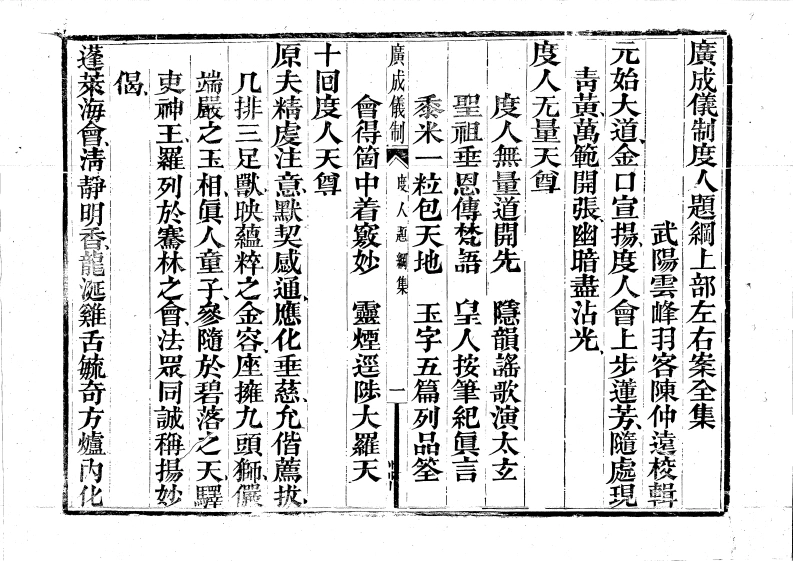 廣成儀制度人題綱上部左右案全集
武陽雲峰羽客陳仲遠校輯
元始大道、金口宣揚、度人會上步蓮芳、隨處現
青黃萬範開張、幽暗盡沾光、
度人无量天尊
度人無量道開先　隱韻謠歌演太玄
聖祖垂恩傳梵語　皇人按筆紀眞言
黍米一粒包天地　玉字五篇列品筌
會得箇中着竅妙　靈煙逕陟大羅天
廣成儀制　度人題綱集　一
十回度人天尊
原夫精虔注意、默契感通、應化垂慈、允偕薦拔、
几排三足獸、映蘊粹之金容、座擁九頭獅、儼
端嚴之玉相、眞人童子、參隨於碧落之天、驛
吏神王、羅列於騫林之會、法眾同誠、稱揚妙
偈、
蓬萊海會、清靜明香、龍涎雞舌毓奇方、爐內化